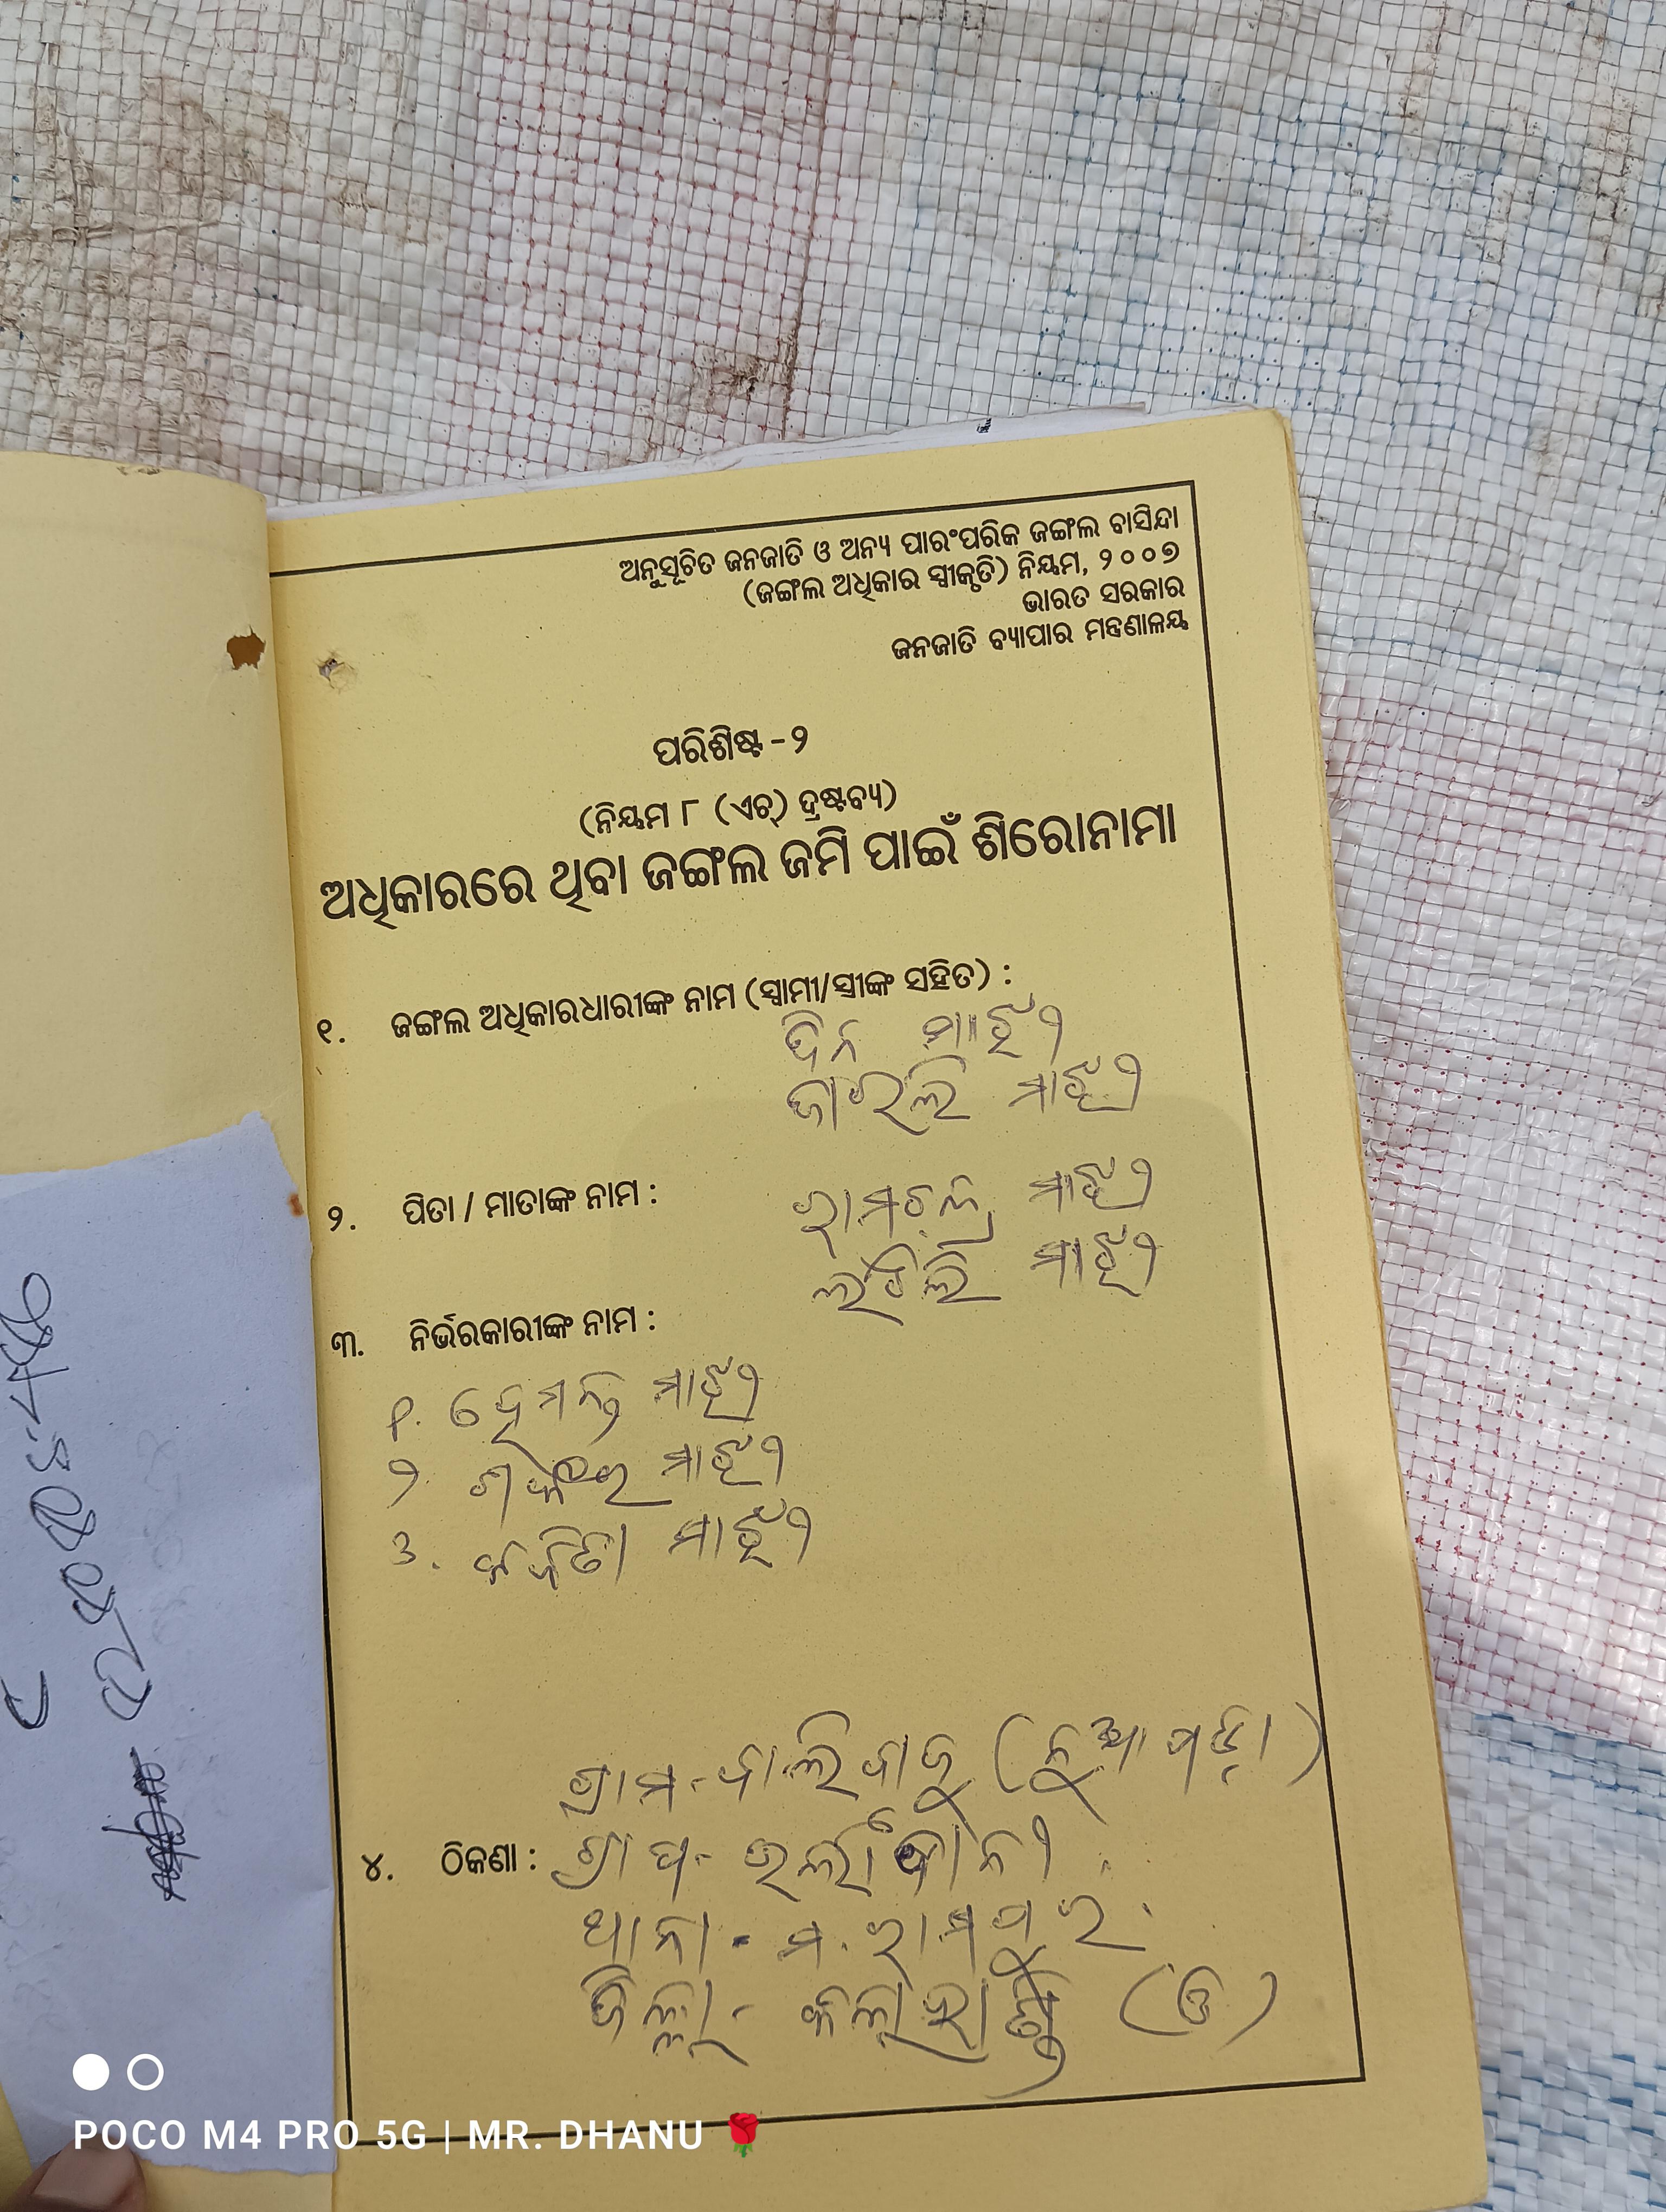 ଅନୁସୂଚିତ ଜନଜାତି ଓ ଅନ୍ୟ ପାରଂପରିକ ଜଙ୍ଗଲ ବାସିନ୍ଦା
(ଜଙ୍ଗଲ ଅଧିକାର ସ୍ୱୀକୃତି) ନିୟମ, ୨୦୦୭
ଭାରତ ସରକାର
ଜନଜାତି ବ୍ୟାପାର ମନ୍ତ୍ରଣାଳୟ
ପରିଶିଷ୍ଟ - ୨
(ନିୟମ ୮ (ଏଚ୍) ଦ୍ରଷ୍ଟବ୍ୟ)
ଅଧିକାରରେ ଥିବା ଜଙ୍ଗଲ ଜମି ପାଇଁ ଶିରୋନାମା
୧. ଜଙ୍ଗଲ ଅଧିକାରଧାରୀଙ୍କ ନାମ (ସ୍ୱାମୀ/ସ୍ତ୍ରୀଙ୍କ ସହିତ) :
ଦିନ ମାଝୀ
ମାଝୀ
୨. ପିତା / ମାତାଙ୍କ ନାମ :
ରାମଚନ୍ଦ୍ର ମାଝୀ
ମାଝୀ
୩. ନିର୍ଭରକାରୀଙ୍କ ନାମ :
୧. ହେମନ୍ତ ମାଝୀ
୨. ଶଙ୍କର ମାଝୀ
୩. କବିତା ମାଝୀ
ଗ୍ରାମ - ବାଲିବାଜୁ (ନୁଆପଡ଼ା)
୪. ଠିକଣା : ଗ୍ରା ପ -
ଥାନା - ମ. ରାମପୁର
ଜିଲ୍ଲା - କଲାହାଣ୍ଡି (ଓ)
POCO M4 PRO 5G | MR. DHANU 🌹